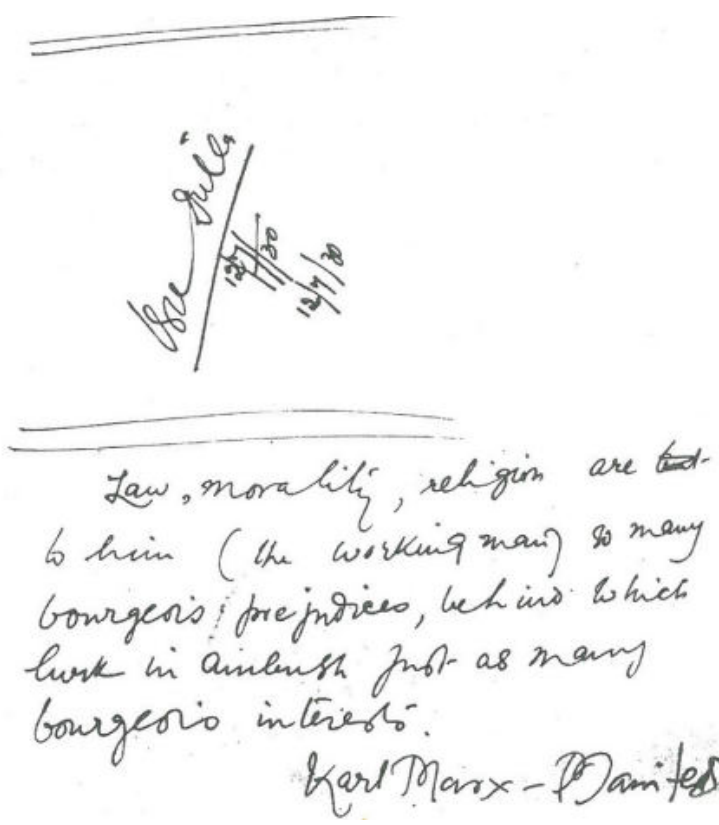 12/7/30
12/7/30
Law, morality, religion are
to him (the working man) so many
bourgeois prejudices, behind which
lurk in ambush just as many
bourgeois interests.
Karl Marx -